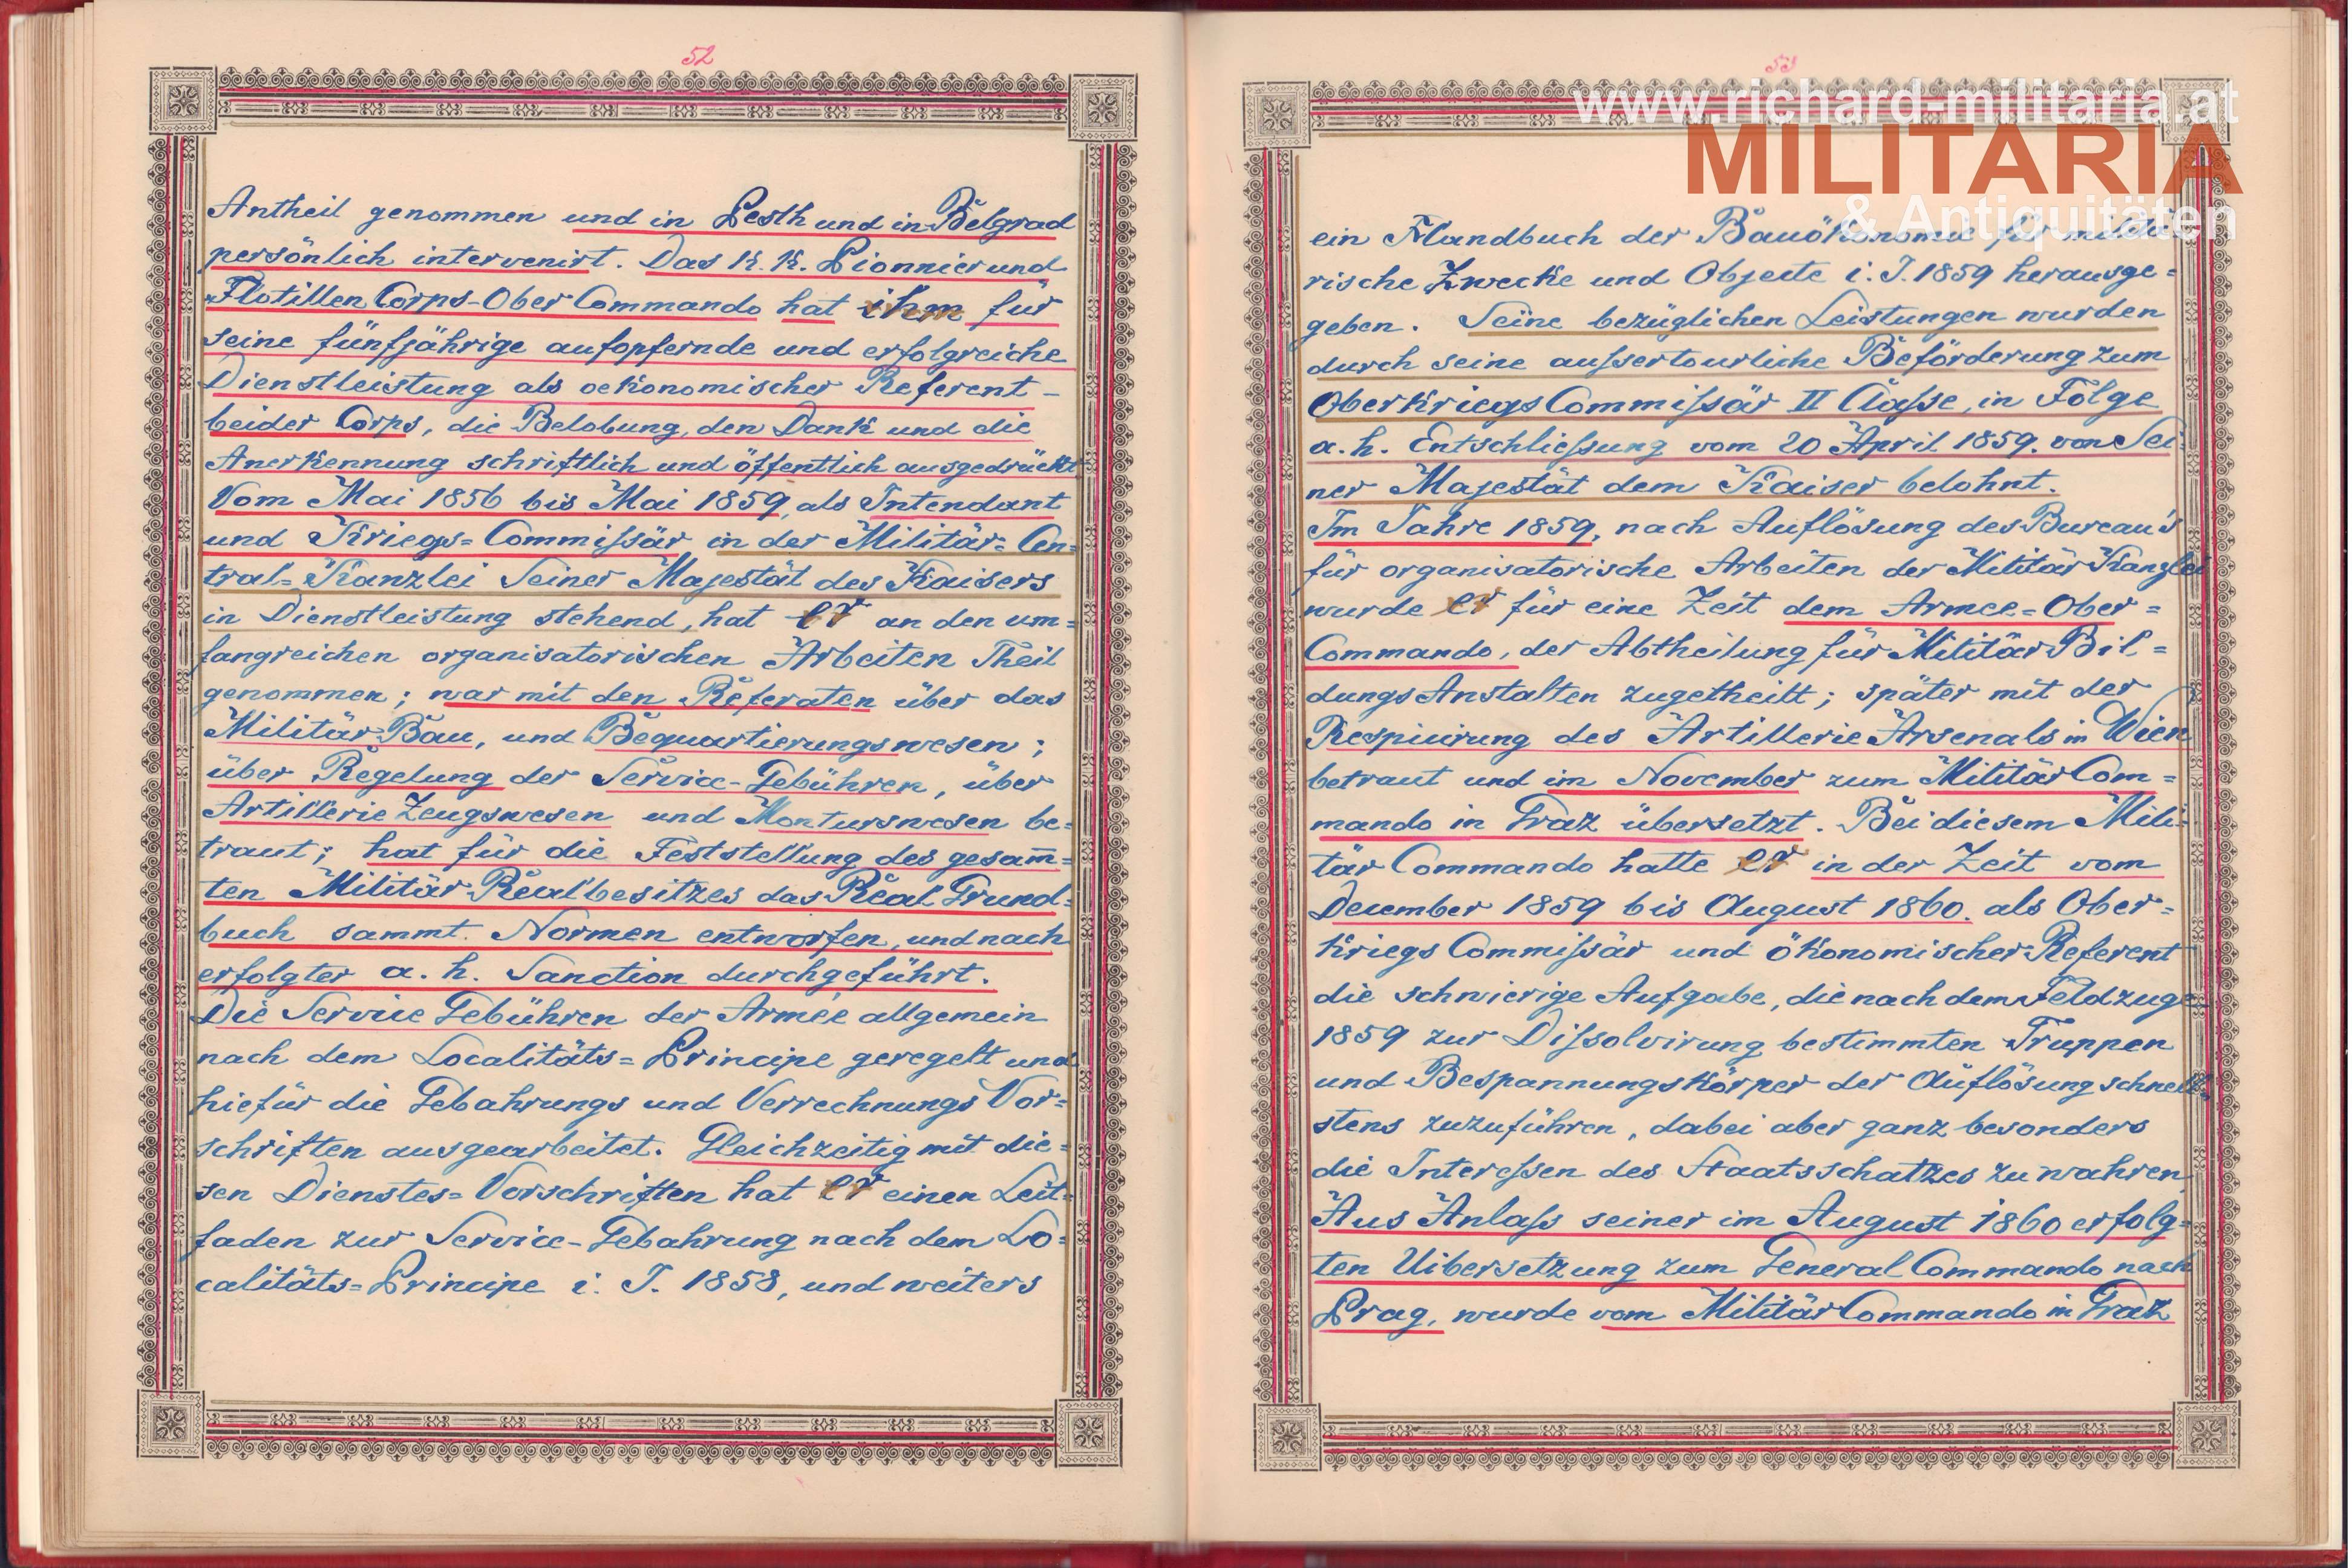 52
Antheil genommen und in Pesth und in Belgrad
persönlich intervenirt. Das K. K. Pionnier und
Flotillen Corps-Ober Commando hat ihm für
seine fünfjährige aufopfernde und erfolgreiche
Dienstleistung als oekonomischer Referent-
beider Corps, die Belobung, den Dank und die
Anerkennung schriftlich und öffentlich ausgedrückt
Vom Mai 1856 bis Mai 1859, als Intendant
und Kriegs=Commißär in der Militär=Cen=
tral=Kanzlei Seiner Majestät des Kaisers
in Dienstleistung stehend, hat er an den um=
fangreichen organisatorischen Arbeiten Theil
genommen; war mit den Referaten über das
Militär-Bau, und Bequartierungswesen;
über Regelung der Service-Gebühren, über
Artillerie Zeugswesen und Monturswesen be=
traut; hat für die Feststellung des gesam̅=
ten Militär-Realbesitzes das Real Grund=
buch sammt. Normen entworfen, und nach
erfolgter a. h. Sanction durchgeführt.
Die Service Gebühren der Armée allgemein
nach dem Localitäts=Principe geregelt und
hiefür die Gebahrungs und Verrechnungs Vor=
schriften ausgearbeitet. Gleichzeitig mit die=
sen Dienstes=Vorschriften hat er einen Leit=
faden zur Service-Gebahrung nach dem Lo=
calitäts=Principe i. J. 1858, und weiters
53
www.richard-militaria.at
MILITARIA
& Antiquitäten
ein Handbuch der Bauökonomie für militä
rische Zwecke und Objecte i. J. 1859 herausge=
geben. Seine bezüglichen Leistungen wurden
durch seine außertourliche Beförderung zum
Oberkriegs Commißär II Claße, in Folge
a. h. Entschließung vom 20 April 1859. von Sei=
ner Majestät dem Kaiser belohnt.
Im Jahre 1859, nach Auflösung des Bureau's
für organisatorische Arbeiten der Militär Kanzlei
wurde er für eine Zeit dem Armee=Ober=
Commando, der Abtheilung für Militär Bil=
dungs Anstalten zugetheilt; später mit der
Respicirung des Artillerie Arsenals in Wien
betraut und im November zum Militär Com=
mando in Graz übersetzt. Bei diesem Mili=
tär Commando hatte er in der Zeit vom
December 1859 bis August 1860. als Ober=
Kriegs Commißär und ökonomischer Referent
die schwierige Aufgabe, die nach dem Feldzuge
1859 zur Dißolvirung bestimmten Truppen
und Bespannungskörper der Auflösung schnell=
stens zuzuführen, dabei aber ganz besonders
die Intereßen des Staatsschatzes zu wahren
Aus Anlaß seiner im August 1860 erfolg=
ten Uibersetzung zum General Commando nach
Prag, wurde vom Militär Commando in Graz